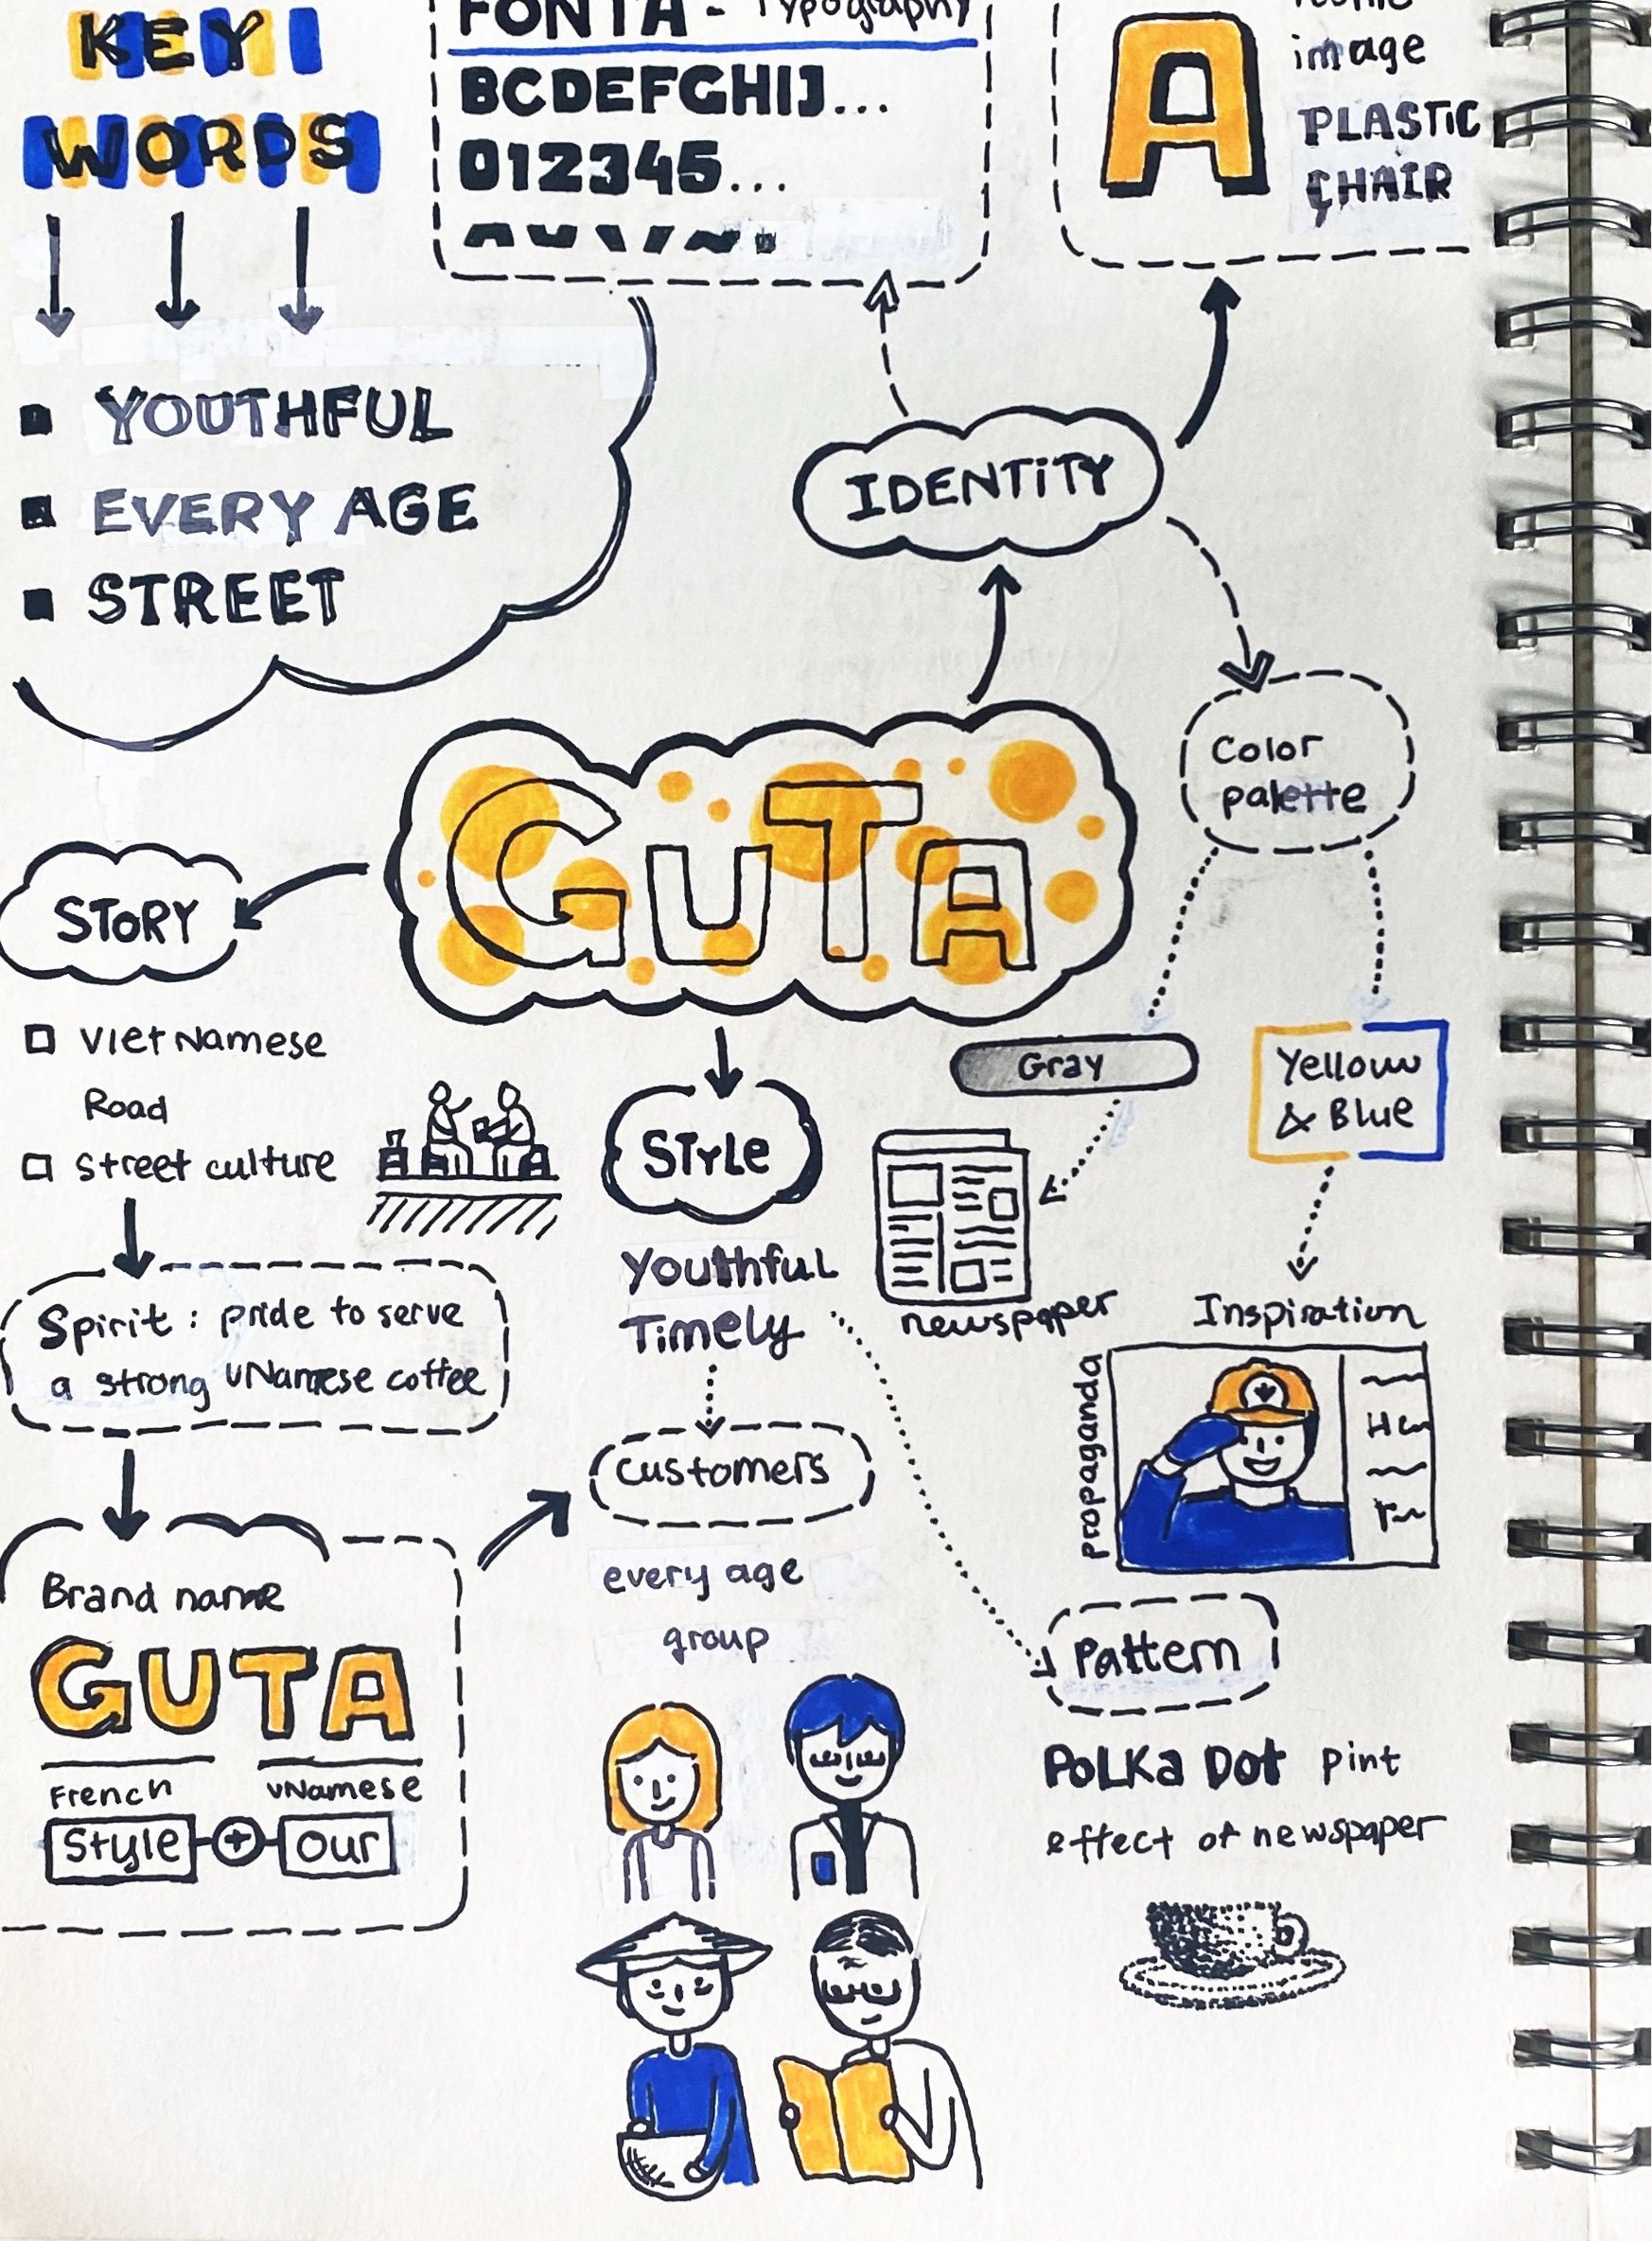 KEY
WORDS
YOUTHFUL
EVERY AGE
STREET
FONTA - Typography
BCDEFGHIJ...
012345...
A
image
PLASTIC
CHAIR
IDENTITY
Color
palette
GUTA
STORY
VietNamese
Road
street culture
Spirit: pride to serve
a strong vNamese coffee
Brand name
GUTA
French vNamese
Style + our
STYLE
Youthful
Timely
customers
every age
group
Gray
newspaper
Yellow
& Blue
Inspiration
propaganda
Pattern
POLKA DOT pint
effect of newspaper